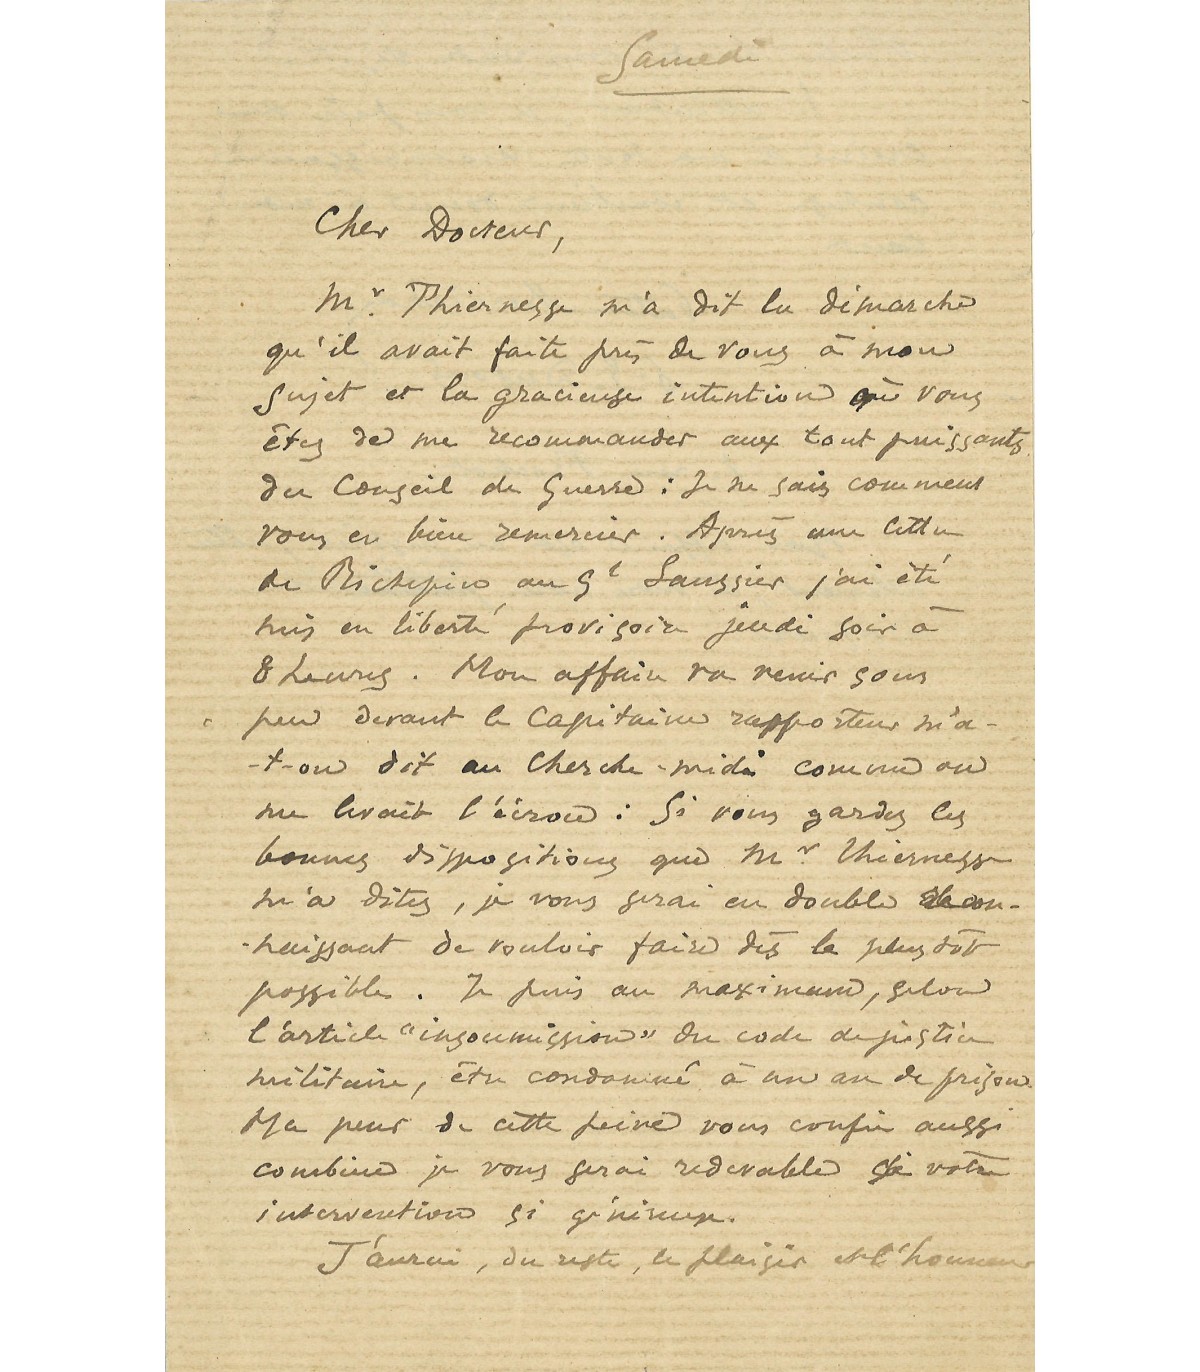 Samedi
Cher Docteur,
Mr. Thiernesse m'a dit la démarche
qu'il avait faite près de vous à mon
sujet et la gracieuse intention où vous
êtes de me recommander aux tout puissants
du Conseil de Guerre : Je ne sais comment
vous en bien remercier. Après une lettre
de Richepin au Gl Saussier j'ai été
mis en liberté provisoire jeudi soir à
8 heures. Mon affaire va venir sous
peu devant le Capitaine rapporteur m'a-
-t-on dit au Cherche-midi comme on
me levait l'écrou : Si vous gardez les
bonnes dispositions que Mr. Thiernesse
m'a dites, je vous serai en double recon-
-naissant de vouloir faire dès le plus tôt
possible. Je puis au maximum, selon
l'article "insoumission" du code de justice
militaire, être condamné à un an de prison.
Ma peur de cette peine vous confie aussi
combien je vous serai redevable de votre
intervention si généreuse.
J'aurai, du reste, le plaisir et l'honneur